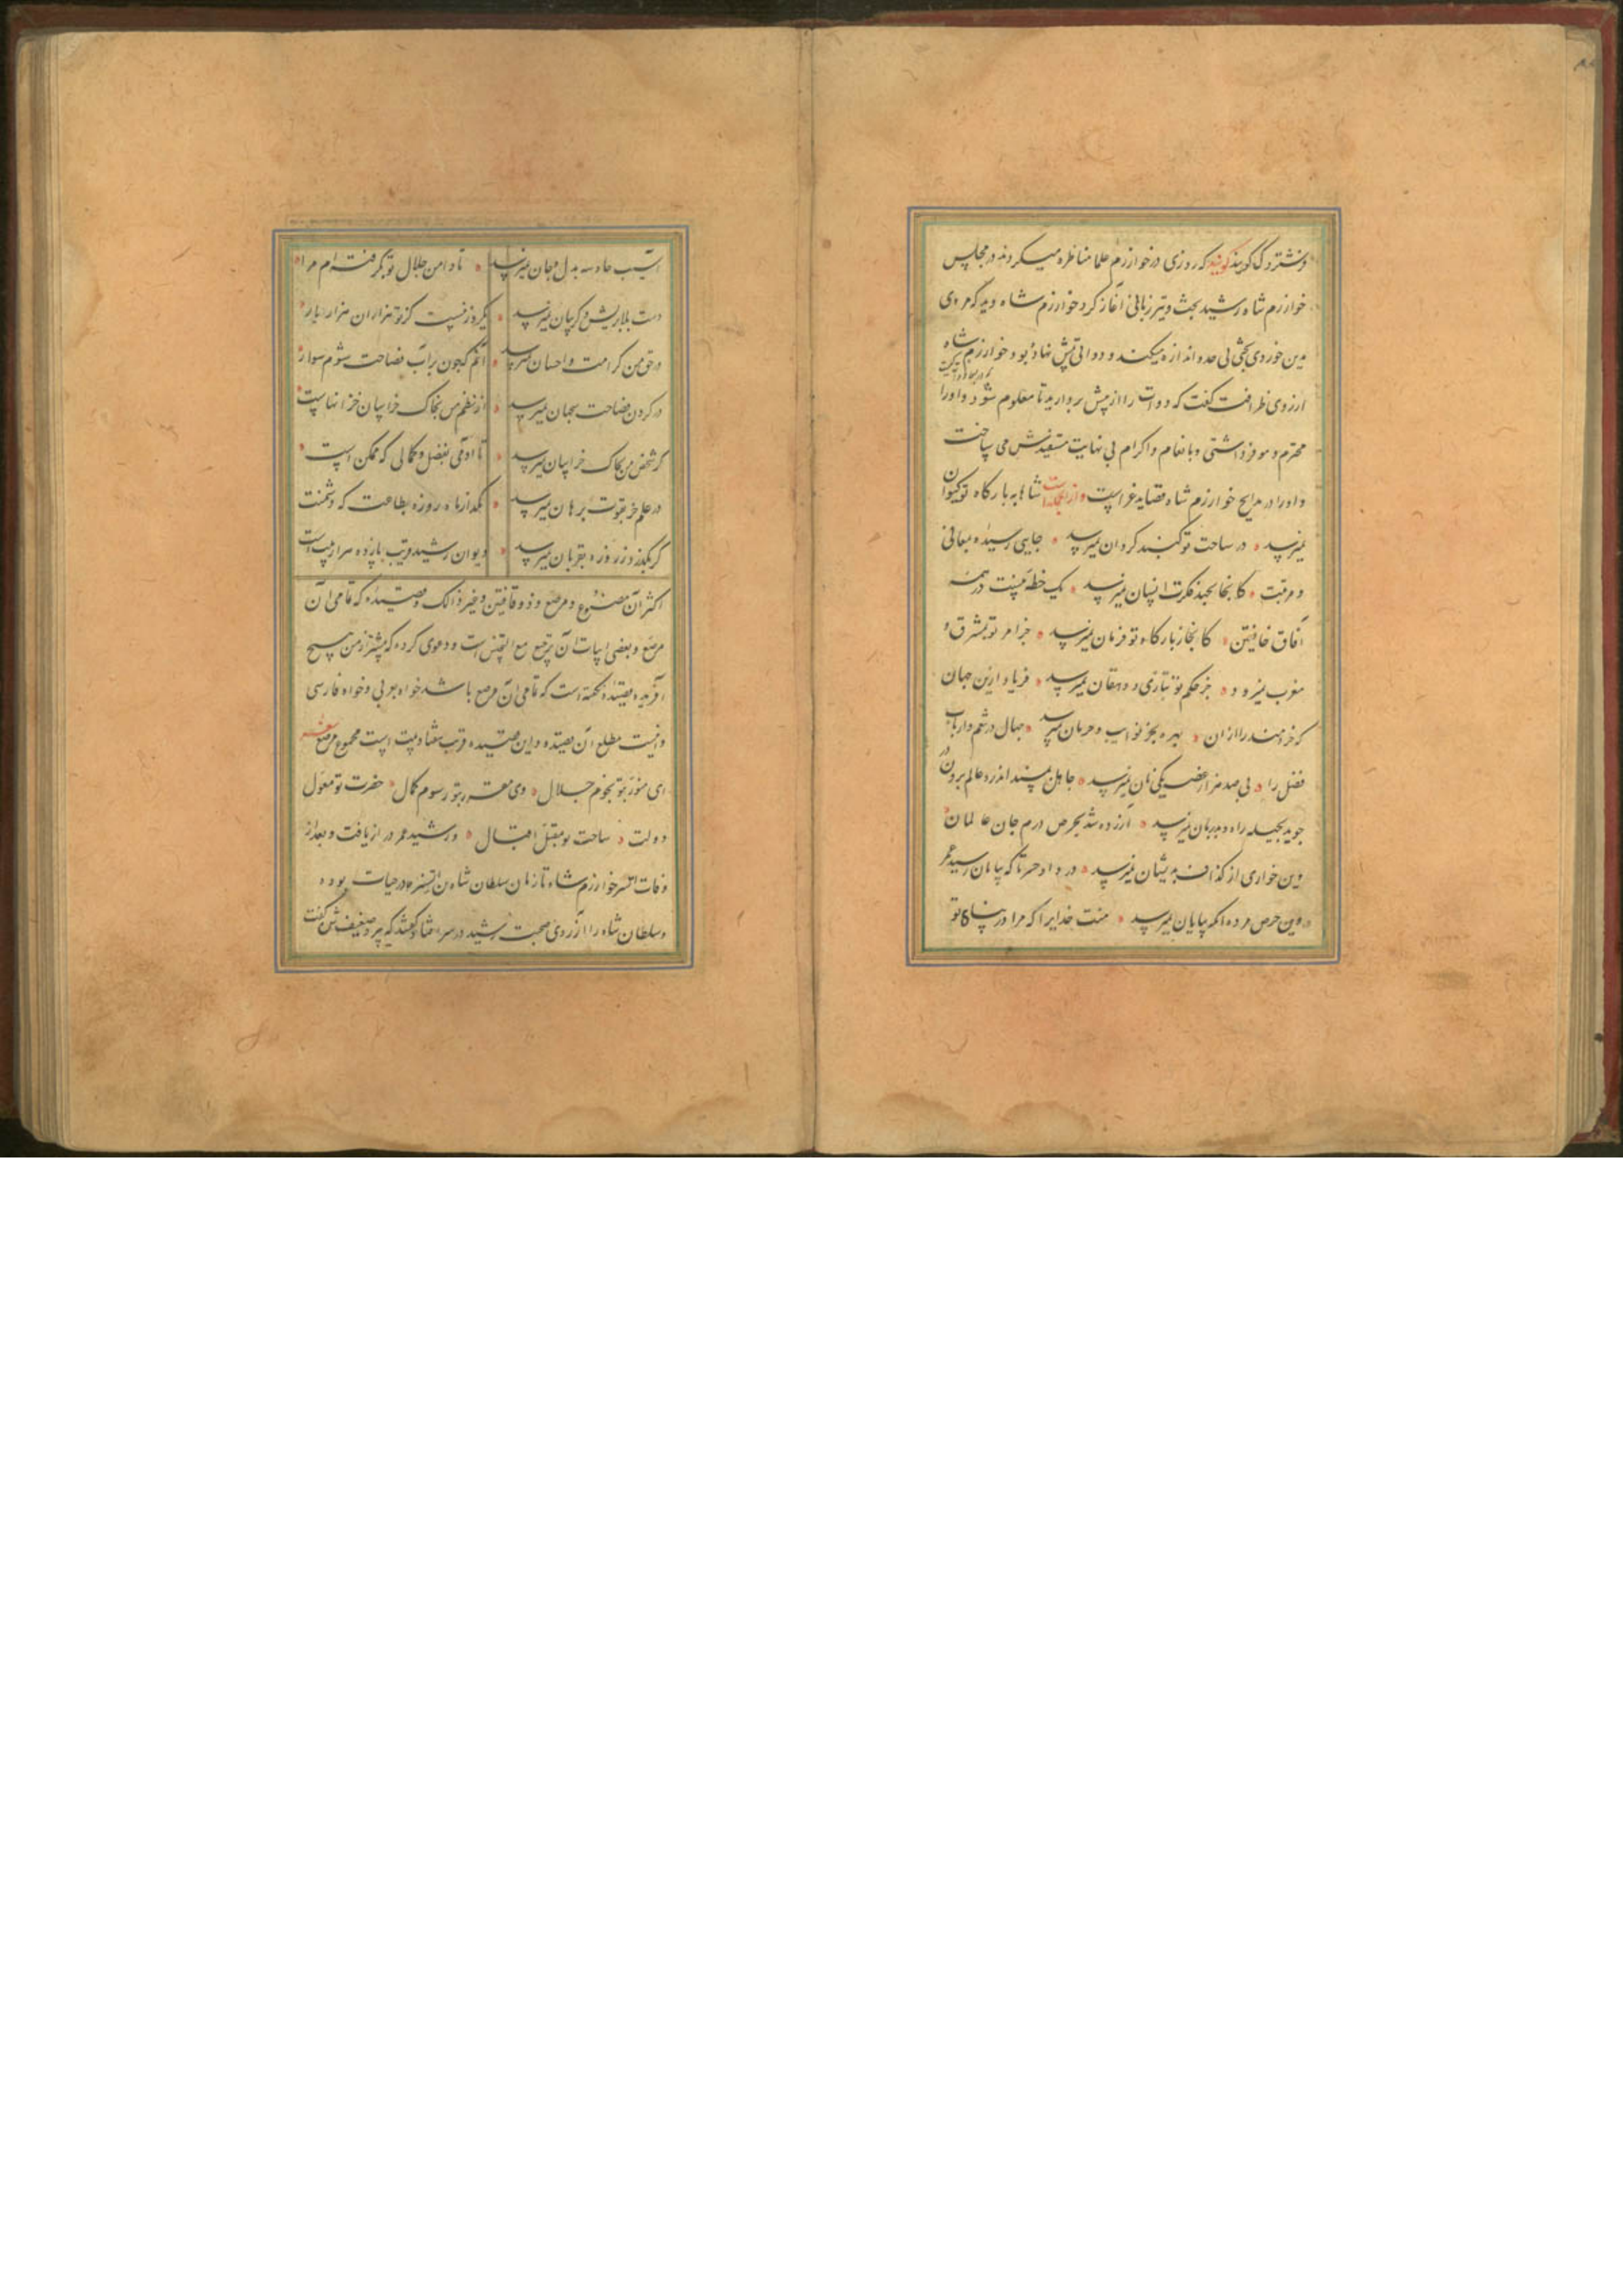 و شتردک گویند گویند که روزی در خوارزم علما مناظره میکردند در مجلس
خوارزم شاه رشید بحث و تیز زبانی آغاز کرد خوارزم شاه دید که مردی
بدین خوردی بحثی بی حد و اندازه میکند و دواتی پیش نهاده بود خوارزم شاه
از روی ظرافت گفت که دوات را از پیش بردارید تا معلوم شود و اورا
محترم و موفر داشتی و بانعام و اکرام بی نهایت مستفیدش می ساخت
و اورا در مدایح خوارزم شاه قصاید غراست و از انجمله است شاها به بارگاه تو کیوان
نمیرسد در ساحت تو گنبد گردان نمیرسد جایی رسیده بمعالی
و مرتبت کانجا بجهد فکرت انسان نمیرسد یک خطه نیست در همه
آفاق خافقین کانجا ز بارگاه تو فرمان نمیرسد جز امر تو بمشرق و
مغرب نمیرود جز حکم تو بتازی و دهقان نمیرسد فریاد ازین جهان
که خردمند را ازان بهره بجز نوایب و حرمان نمیرسد جهال در تنعم و ارباب
فضل را بی صد هزار غصه یکی نان نمیرسد جاهل بمسند اندر و عالم برون در
جوید بحیله راه و بدربان نمیرسد آزرده شد بحرص درم جان عالمان
وین خواری از گذاف بدیشان نمیرسد دردا و حسرتا که بپایان رسید عمر
وین حرص مرده ریگ بپایان نمیرسد منت خدایرا که مرا در پناه تو
آسیب حادثه بدل و جان نمیرسد تا دامن جلال تو بگرفته ام مرا
دست بلا بریش و گریبان نمیرسد یکروز نیست کز تو هزاران هزار بار
در حق من کرامت و احسان نمیرسد آنم که چون برآب فصاحت شوم سوار
در گرد من فصاحت سحبان نمیرسد از نظم من بخاک خراسان خزانهاست
گر شخص من بخاک خراسان نمیرسد تا آدمی بفضل و کمالی که ممکن است
در علم جز بقوت برهان نمیرسد بگذار ماه روزه بطاعت که دشمنت
گر بگذرد ز روزه بقربان نمیرسد دیوان رشید قریب پانزده هزار بیت است
اکثر آن مصنوع و مرصع و ذو قافیتین و غیر ذالک و قصیده که تمامی آن
مرصع و بعضی ابیات آن ترصیع مع التجنیس است و دعوی کرده که پیشتر از من هیچ
آفریده قصیده نگفته است که تمامی آن مرصع باشد خواه عربی و خواه فارسی
و اینست مطلع آن قصیده و این قصیده قرب هفتاد بیت است مجموع مرصع
ای منور بتو نجوم جلال وی مقرر بتو رسوم کمال حضرت تو معول
دولت ساحت تو مقبل اقبال و رشید عمر دراز یافت و بعد از
وفات اتسز خوارزم شاه تا زمان سلطان شاه بن اتسز در حیات بوده
و سلطان شاه را آرزوی صحبت رشید در سر افتاد گفتند که پیر و ضعیف شن گفت